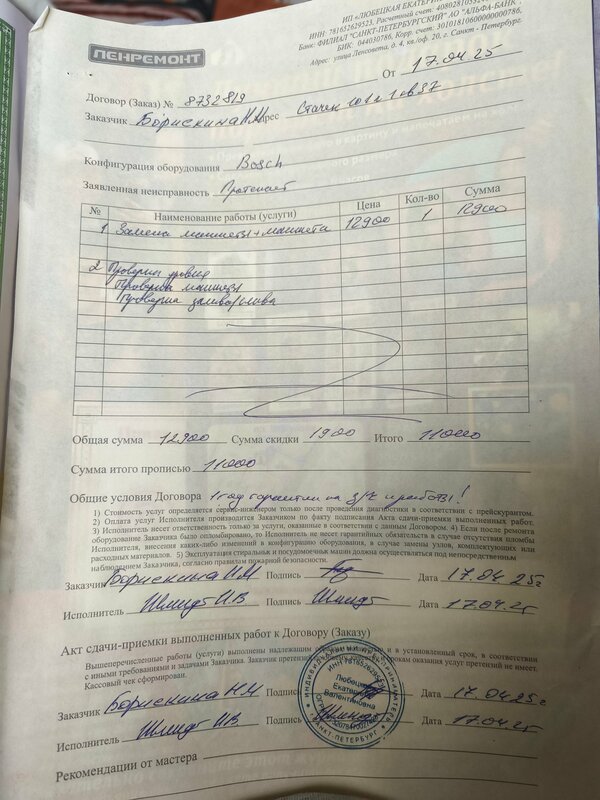 ИП «ЛЮБЕЦКАЯ ЕКАТЕР
ИНН 781652629523. Расчетный счет: 4080281053
Банк: ФИЛИАЛ "САНКТ-ПЕТЕРБУРГСКИЙ" АО "АЛЬФА-БАНК",
БИК: 044030786, Корр. счет: 30101810600000000786.
Адрес: улица Ленсовета, д. 4, кв./оф. 20, г. Санкт - Петербург.
ЛЕНРЕМОНТ
От 17.04.25
Договор (Заказ) № 8732819
Заказчик Борискина Н.М Адрес Стачек 101 к 1 кв 37
Конфигурация оборудования Bosch
Заявленная неисправность Протекает
№ Наименование работы (услуги) Цена Кол-во Сумма
1 Замена манжеты + манжета 12900 1 12900
2 Проверка уровня
Проверка манжеты
Проверка залива/слива
Общая сумма 12900 Сумма скидки 1900 Итого 11000
Сумма итого прописью 11000
Общие условия Договора 1 год гарантии на з/ч и работы!
1) Стоимость услуг определяется сервис-инженером только после проведения диагностики в соответствии с прейскурантом.
2) Оплата услуг Исполнителя производится Заказчиком по факту подписания Акта сдачи-приемки выполненных работ.
3) Исполнитель несет ответственность только за услуги, оказанные в соответствии с данным Договором. 4) Если после ремонта
оборудование Заказчика было опломбировано, то Исполнитель не несет гарантийных обязательств в случае отсутствия пломбы
Исполнителя, внесения каких-либо изменений в конфигурацию оборудования, в случае замены узлов, комплектующих или
расходных материалов. 5) Эксплуатация стиральных и посудомоечных машин должна осуществляться под непосредственным
наблюдением Заказчика, согласно правилам пожарной безопасности.
Заказчик Борискина Н.М Подпись Дата 17.04.25г
Исполнитель Шмидт И.В Подпись Шмидт Дата 17.04.25
Акт сдачи-приемки выполненных работ к Договору (Заказу)
Вышеперечисленные работы (услуги) выполнены надлежащим и в установленный срок, в соответствии
с иными требованиями и задачами Заказчика. Заказчик претензий срокам оказания услуг претензий не имеет.
Кассовый чек сформирован.
Заказчик Борискина Н.М Подпись Дата 17.04.25
Исполнитель Шмидт И.В Подпись Шмидт Дата 17.04.25
ИНДИВИДУАЛЬНЫЙ ПРЕДПРИНИМАТЕЛЬ
Любецкая
Екатерина
Валентиновна
САНКТ-ПЕТЕРБУРГ
Рекомендации от мастера